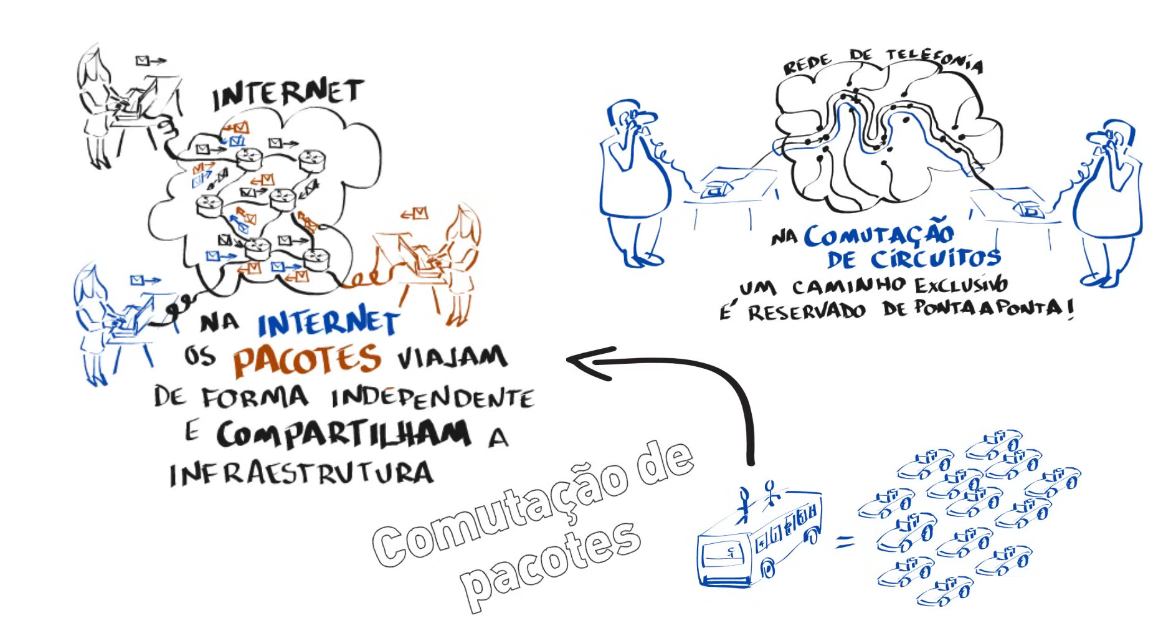 INTERNET
NA INTERNET
OS PACOTES VIAJAM
DE FORMA INDEPENDENTE
E COMPARTILHAM A
INFRAESTRUTURA
REDE DE TELEFONIA
NA COMUTAÇÃO
DE CIRCUITOS
UM CAMINHO EXCLUSIVO
É RESERVADO DE PONTA A PONTA!
Comutação de
pacotes
=